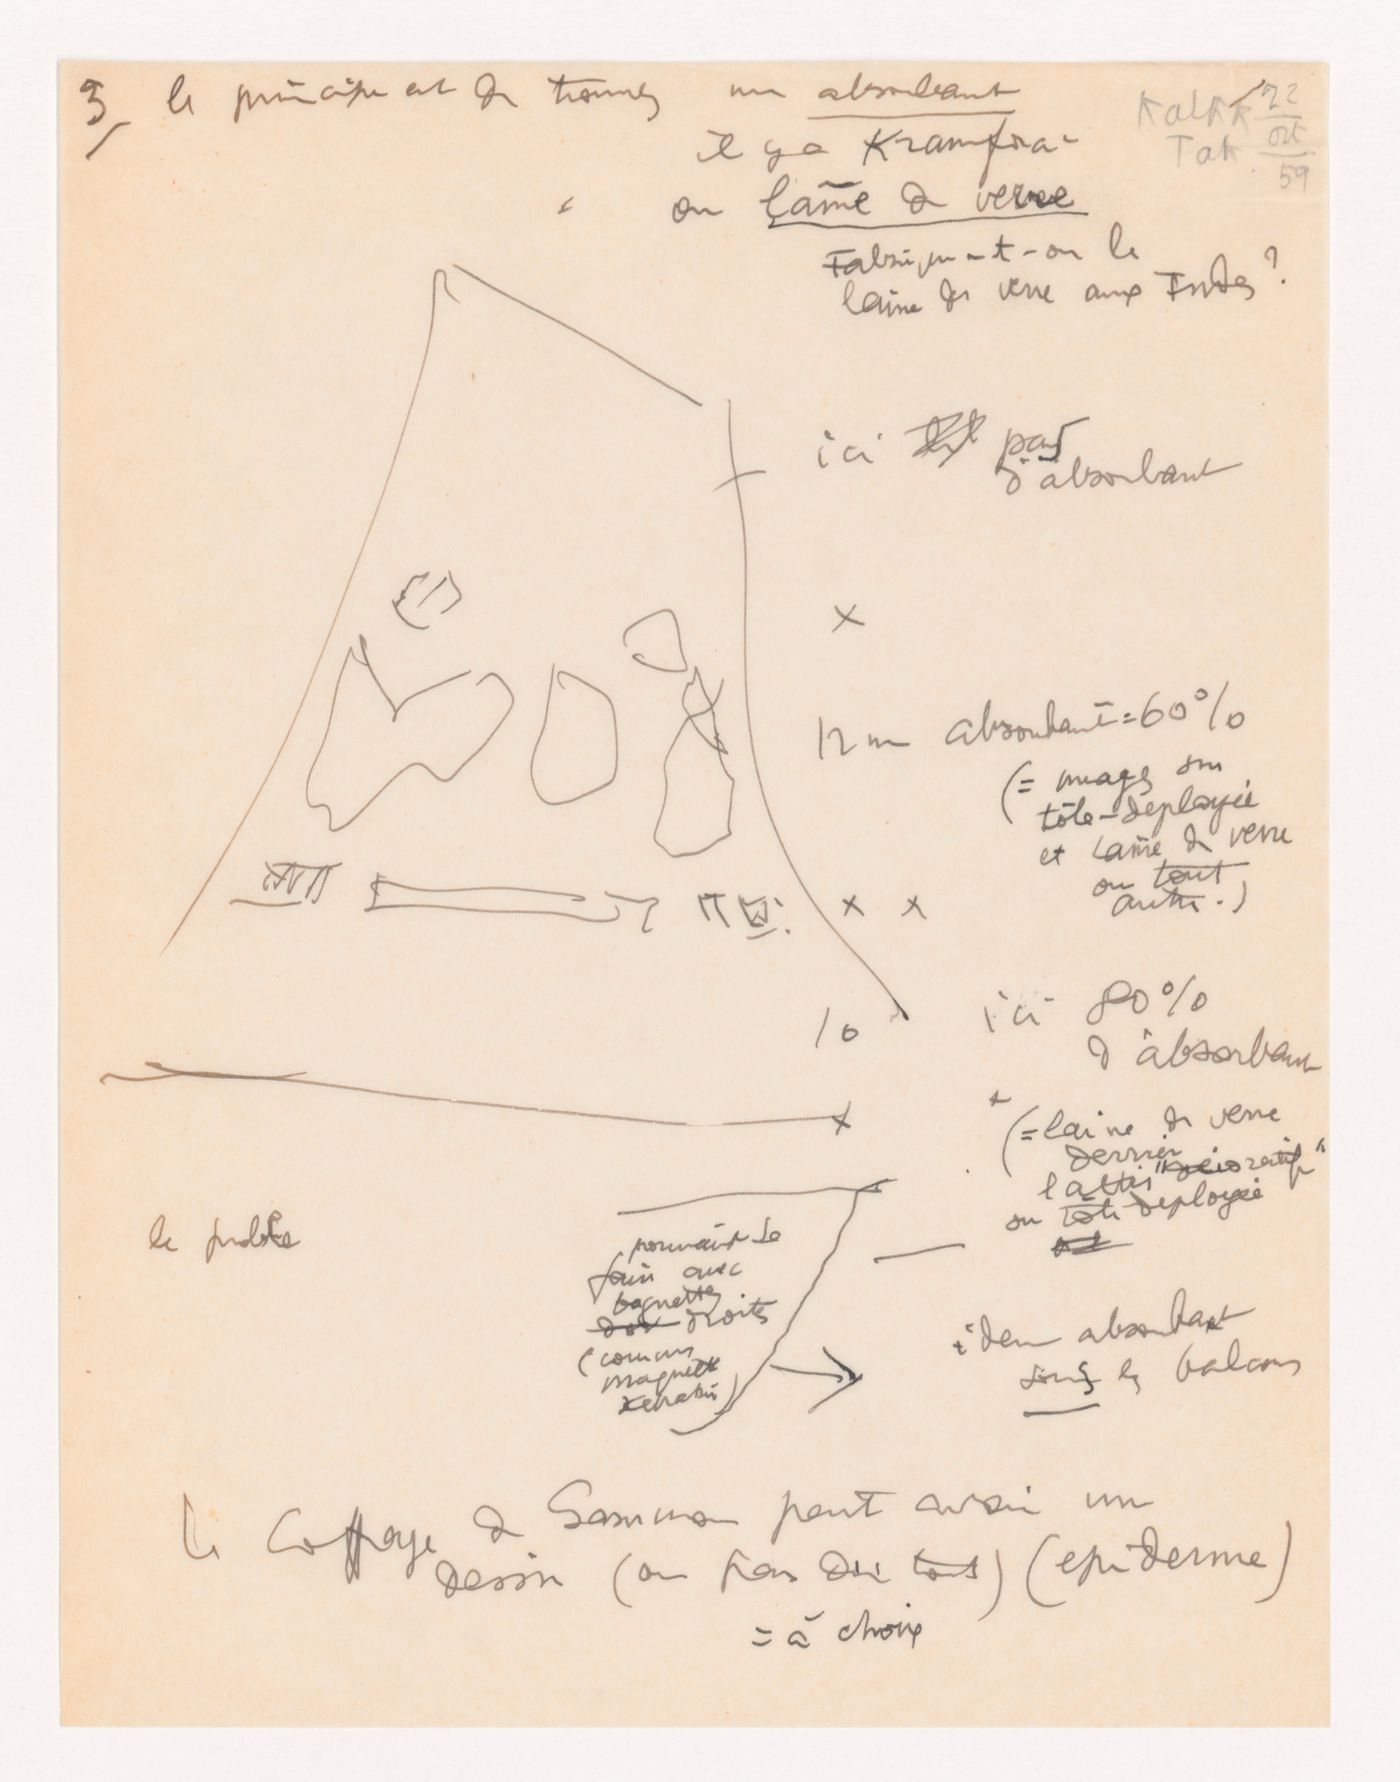 3 le principe est de trouver un absorbant
Kalff 22
Tak oct
59
il y a Kramfora-
ou laine de verre
Fabrique-t-on la
laine de verre aux Indes ?
ici pas
d'absorbant
×
12 m absorbant = 60%
(= nuages sur
tôle-déployée
et laine de verre
ou tout
autre.)
× ×
10
ici 80%
d'absorbant
×
(= laine de verre
derrière
lattis
ou tôle déployée
le problè
pourrait se
faire avec
baguettes
droites
(comme
maquette
Xenakis)
idem absorbant
sous les balcons
le Coffrage de peut avoir un
dessin (ou pas du tout) (epiderme)
= à choix